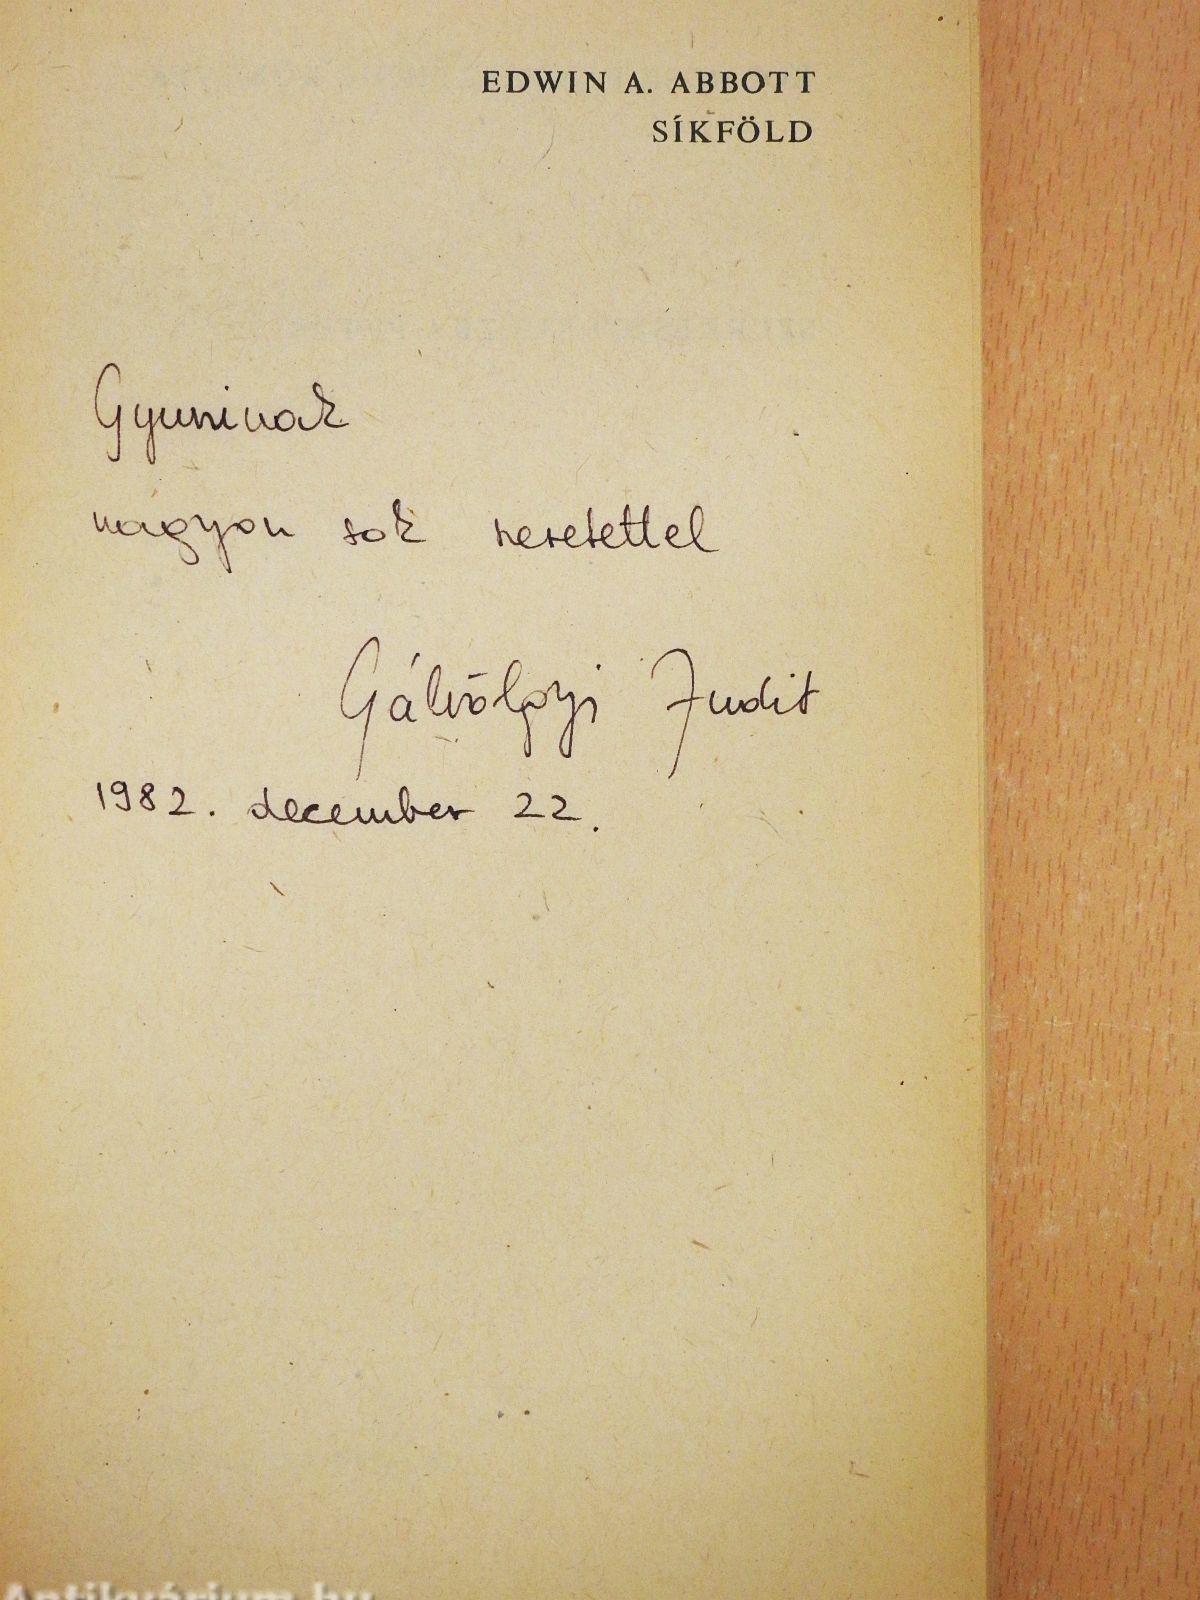 EDWIN A. ABBOTT
SÍKFÖLD
Gyuszinak
nagyon sok szeretettel
Gálvölgyi Judit
1982. december 22.
Antikvárium.hu